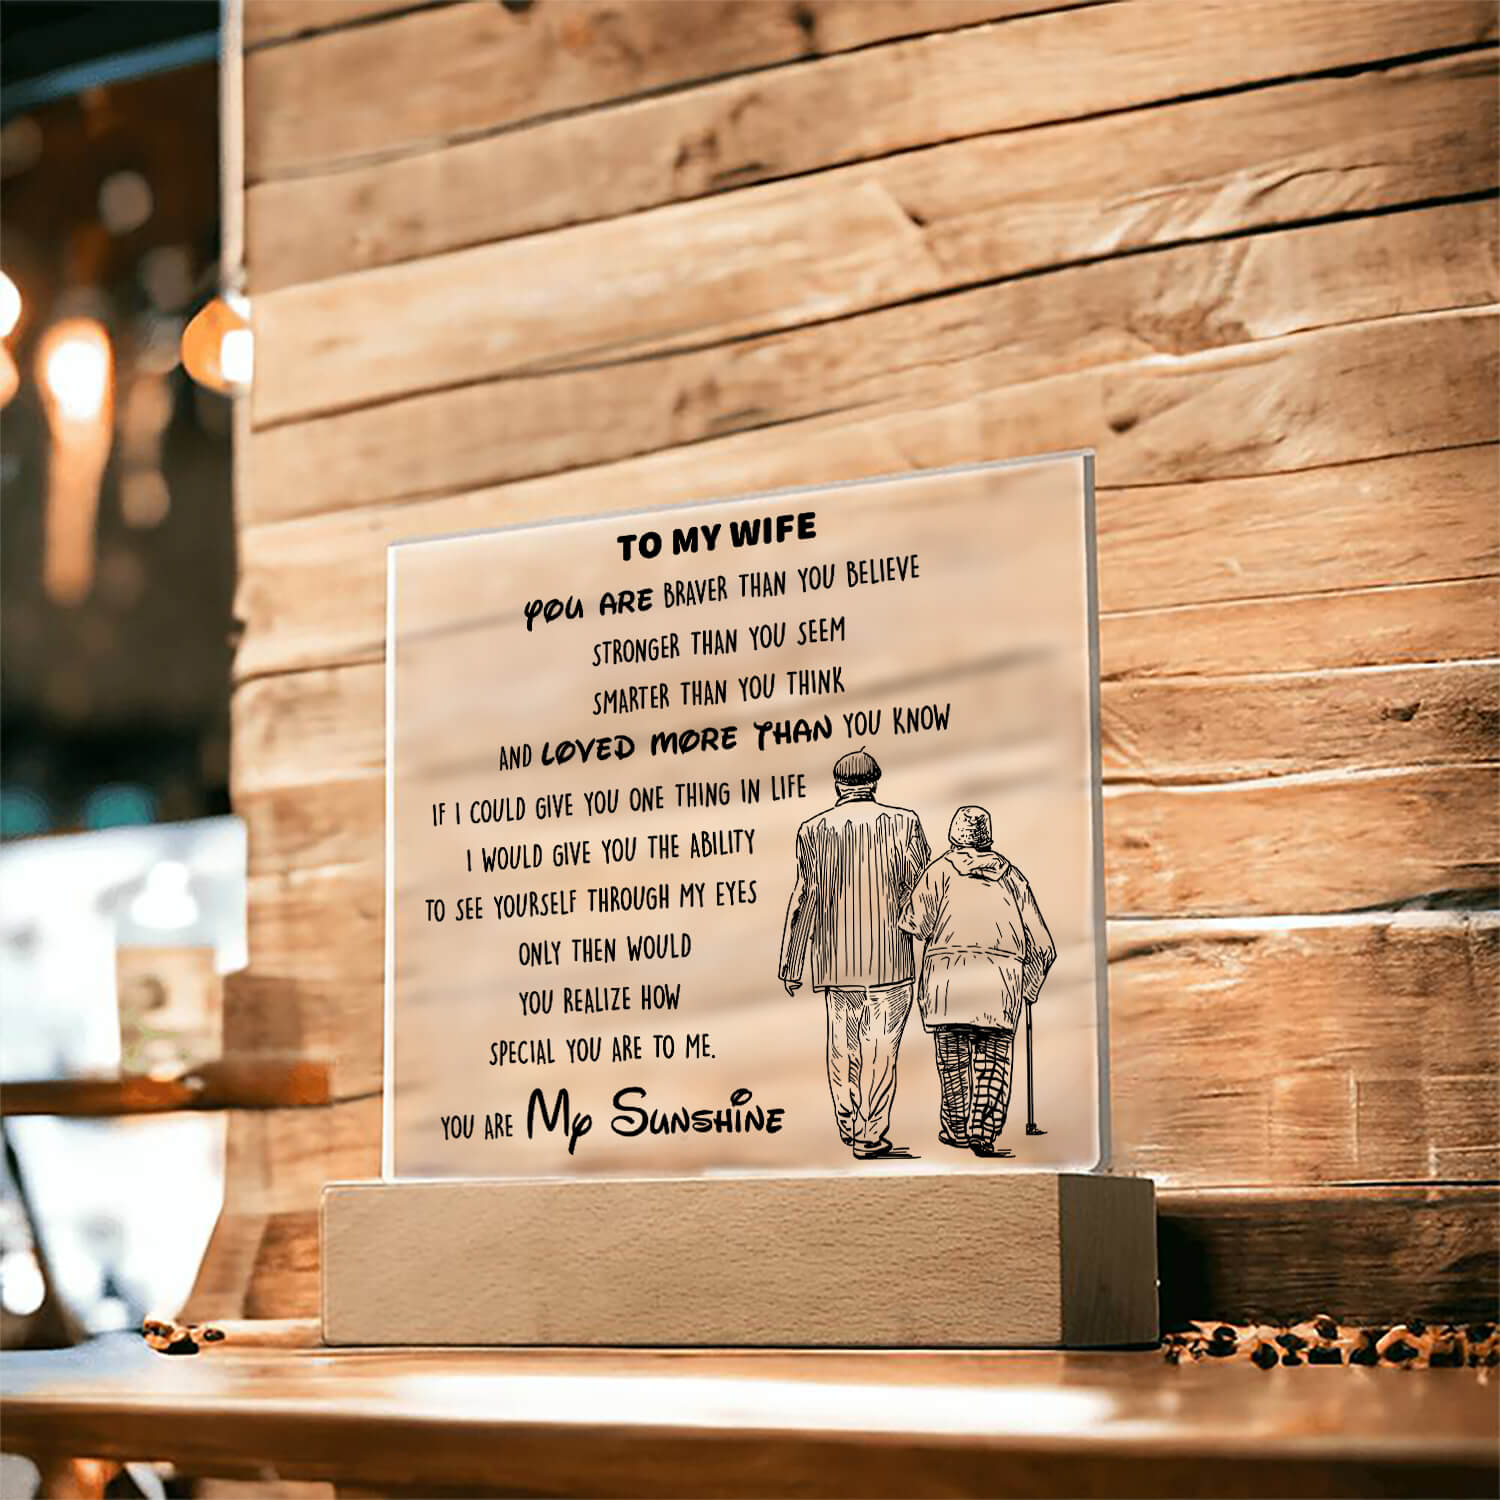 TO MY WIFE
YOU ARE BRAVER THAN YOU BELIEVE
STRONGER THAN YOU SEEM
SMARTER THAN YOU THINK
AND LOVED MORE THAN YOU KNOW
IF I COULD GIVE YOU ONE THING IN LIFE
I WOULD GIVE YOU THE ABILITY
TO SEE YOURSELF THROUGH MY EYES
ONLY THEN WOULD
YOU REALIZE HOW
SPECIAL YOU ARE TO ME.
YOU ARE My SUNSHINE